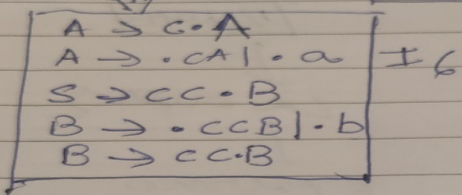 A → c·A
A → ·cA|·a I6
S → cc·B
B → ·ccB|·b
B → cc·B